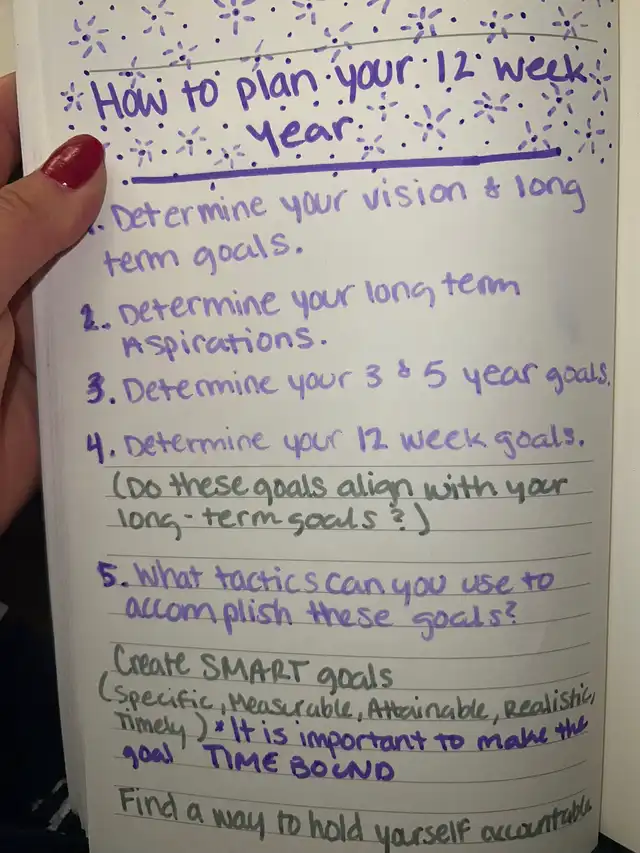 How to plan your 12 week
year
1. Determine your vision & long
term goals.
2. Determine your long term
Aspirations.
3. Determine your 3 & 5 year goals.
4. Determine your 12 week goals.
(Do these goals align with your
long-term goals?)
5. What tactics can you use to
accomplish these goals?
Create SMART goals
(Specific, Measurable, Attainable, Realistic,
Timely) *It is important to make the
goal TIME BOUND
Find a way to hold yourself accountable